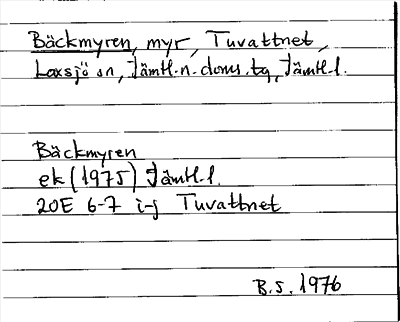 Bäckmyren, myr, Tuvattnet,
Laxsjö sn, Jämtl. n. doms. tg, Jämtl. l.
Bäckmyren
ek (1975) Jämtl. l.
20E 6-7 i-j Tuvattnet
B.S. 1976